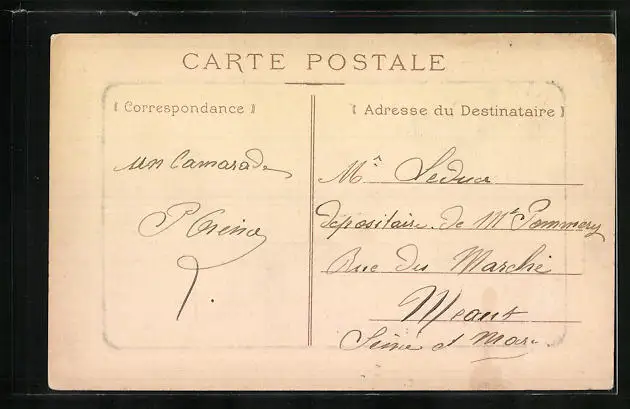 CARTE POSTALE
Correspondance
Adresse du Destinataire
un Camarade
Mr Leduc
dépositaire de Me Pommery
Rue du Marché
Meaux
Seine et Mar.